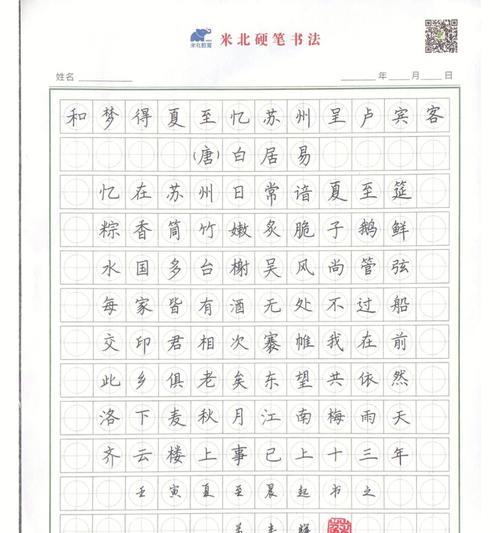 米北教育
米北硬笔书法
姓名 年 月 日
和梦得夏至忆苏州呈卢宾客
(唐)白居易
忆在苏州日常谙夏至筵
粽香筒竹嫩炙脆子鹅鲜
水国多台榭吴风尚管弦
每家皆有酒无处不过船
交印君相次褰帷我在前
此乡俱老矣东望共依然
洛下麦秋月江南梅雨天
齐云楼上事已上十三年
壬寅夏至晨起书之